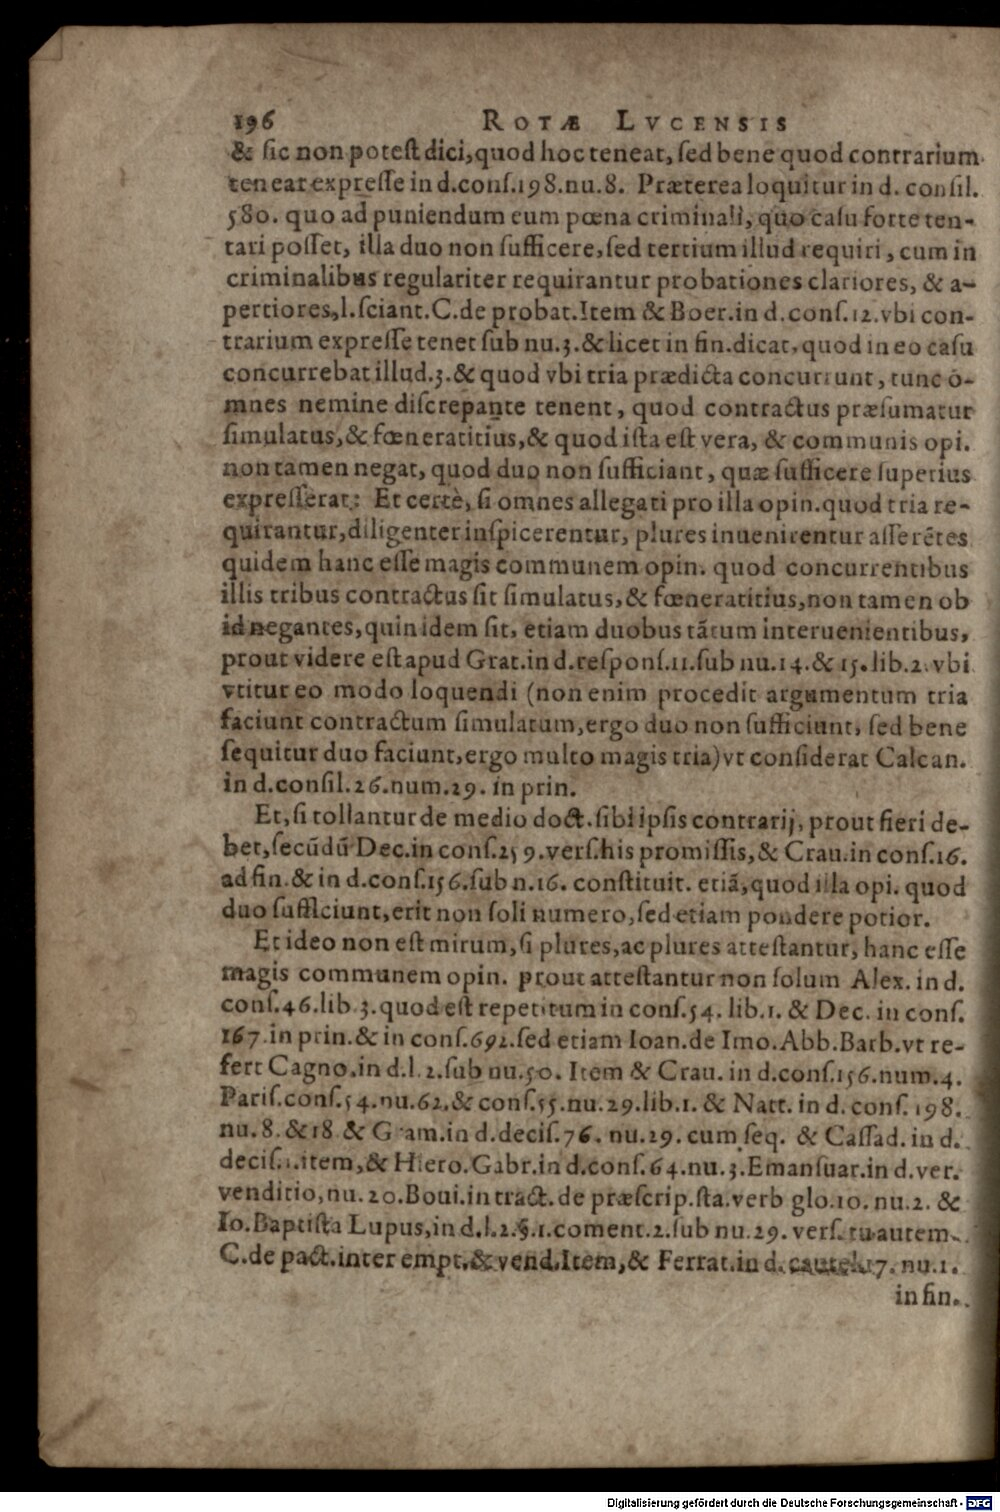 196 ROTÆ LVCENSIS
& ſic non poteſt dici, quod hoc teneat, ſed bene quod contrarium
teneat expreſſe in d. conſ. 198. nu. 8. Præterea loquitur in d. conſil.
580. quo ad puniendum eum pœna criminali, quo caſu forte ten-
tari poſſet, illa duo non ſufficere, ſed tertium illud requiri, cum in
criminalibus regulariter requirantur probationes clariores, & a-
pertiores, l. ſciant. C. de probat. Item & Boer. in d. conſ. 12. vbi con-
trarium expreſſe tenet ſub nu. 3. & licet in fin. dicat, quod in eo caſu
concurrebat illud. 3. & quod vbi tria prædicta concurrunt, tunc ò-
mnes nemine diſcrepante tenent, quod contractus præſumatur
ſimulatus, & fœneratitius, & quod iſta eſt vera, & communis opi.
non tamen negat, quod duo non ſufficiant, quæ ſufficere ſuperius
expreſſerat: Et certè, ſi omnes allegati pro illa opin. quod tria re-
quirantur, diligenter inſpicerentur, plures inuenirentur aſſerẽtes
quidem hanc eſſe magis communem opin. quod concurrentibus
illis tribus contractus ſit ſimulatus, & fœneratitius, non tamen ob
id negantes, quin idem ſit, etiam duobus tãtum interuenientibus,
prout videre eſt apud Grat. in d. reſponſ. 11. ſub nu. 14. & 15. lib. 2. vbi
vtitur eo modo loquendi (non enim procedit argumentum tria
faciunt contractum ſimulatum, ergo duo non ſufficiunt, ſed bene
ſequitur duo faciunt, ergo multo magis tria) vt conſiderat Calcan.
in d. conſil. 26. num. 29. in prin.
Et, ſi tollantur de medio doct. ſibi ipſis contrarij, prout fieri de-
bet, ſecũdũ Dec. in conſ. 259. verſ. his promiſſis, & Crau. in conſ. 16.
ad fin. & in d. conſ. 156. ſub n. 16. conſtituit. etiã, quod illa opi. quod
duo ſufficiunt, erit non ſoli numero, ſed etiam pondere potior.
Et ideo non eſt mirum, ſi plures, ac plures atteſtantur, hanc eſſe
magis communem opin. prout atteſtantur non ſolum Alex. in d.
conſ. 46. lib. 3. quod eſt repetitum in conſ. 54. lib. 1. & Dec. in conſ.
167. in prin. & in conſ. 692. ſed etiam Ioan. de Imo. Abb. Barb. vt re-
fert Cagno. in d. l. 2. ſub nu. 50. Item & Crau. in d. conſ. 156. num. 4.
Pariſ. conſ. 54. nu. 62. & conſ. 55. nu. 29. lib. 1. & Natt. in d. conſ. 198.
nu. 8. & 18 & Gram. in d. deciſ. 76. nu. 29. cum ſeq. & Caſſad. in d.
deciſ. 1. item, & Hiero. Gabr. in d. conſ. 64. nu. 3. Emanſuar. in d. ver.
venditio, nu. 20. Boui. in tract. de præſcrip. ſta. verb glo. 10. nu. 2. &
Io. Baptiſta Lupus, in d. l. 2. §. 1. coment. 2. ſub nu. 29. verſ. tu autem.
C. de pact. inter empt. & vend. Item, & Ferrat. in d. cautel. 17. nu. 1.
in fin.
Digitalisierung gefördert durch die Deutsche Forschungsgemeinschaft - DFG